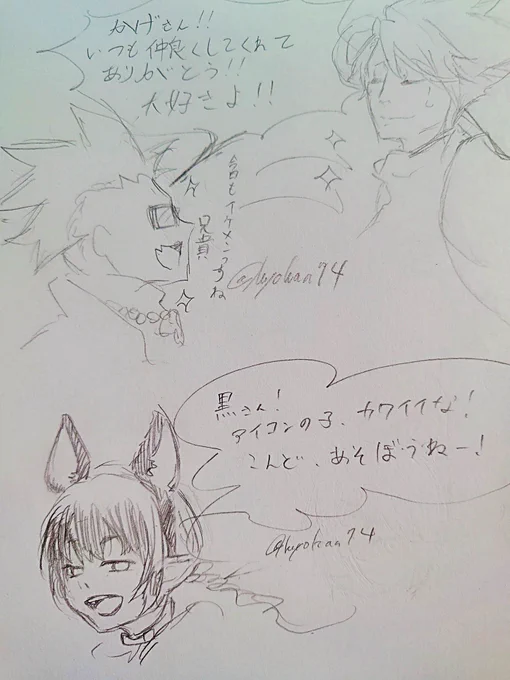 かげさん!!
いつも仲良くしてくれて
ありがとう!!
大好きよ!!
今日もイケメンっすね
兄貴
黒さん!
アイコンの子、カワイイな!
こんど、あそぼうねー!